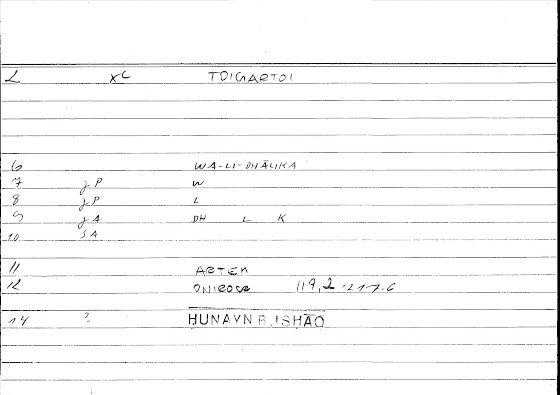 2 xc TOIGARTOI
6 WA-LI-DHĀLIKA
7 JP W
8 JP L
9 JA DH L K
10 SA
11 ARTEM
12 ONIROCR 119,2 - 217.6
14 ? HUNAYN B. ISHĀQ